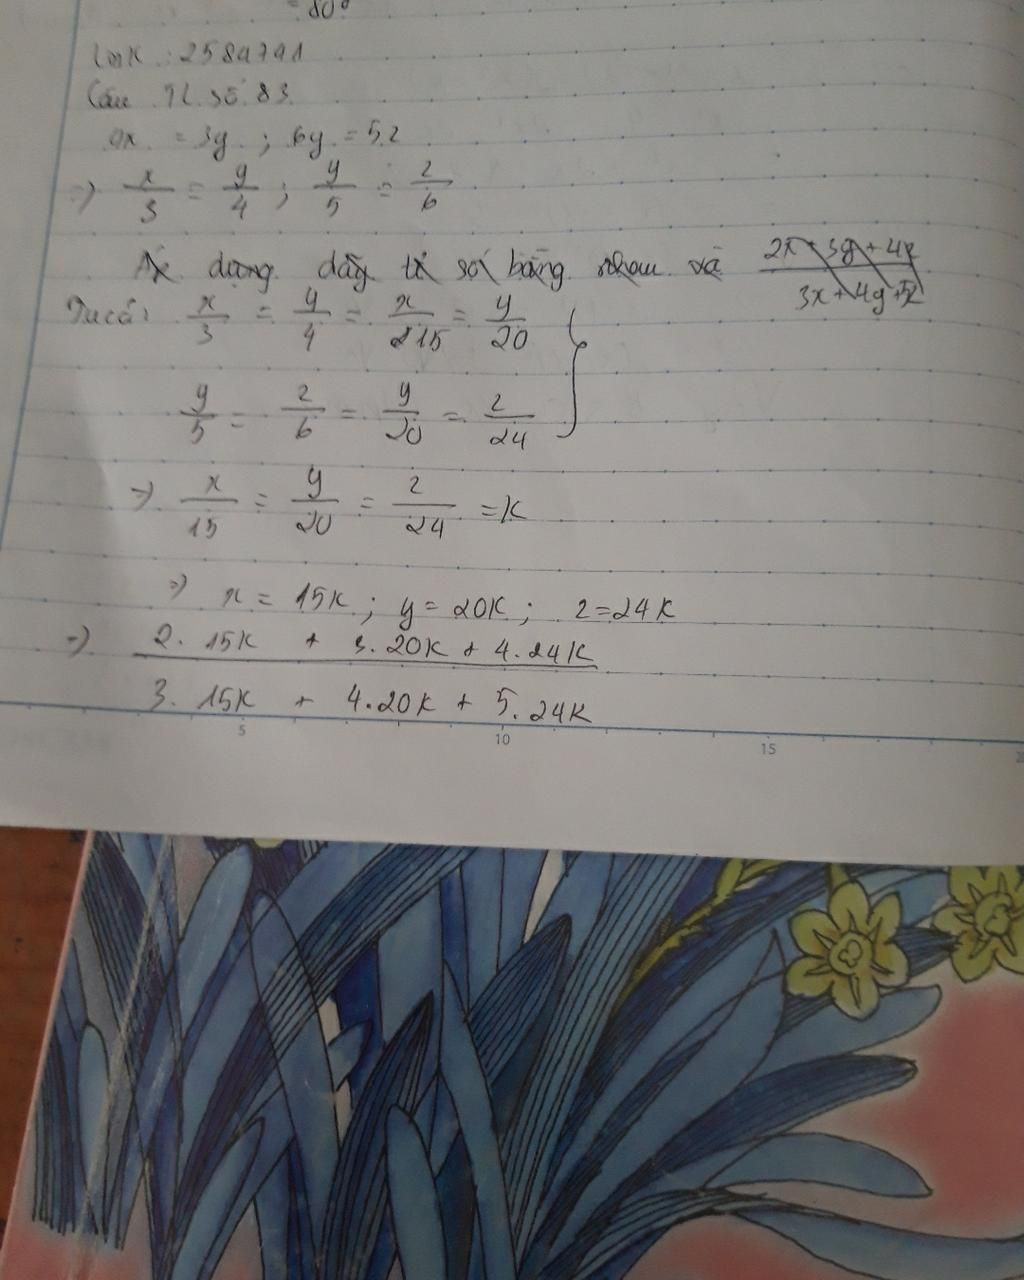 = 80°
Link : 2589791
Câu 72 số 83
4x = 3y ; 6y = 5z
=) x/3 = y/4 ; y/5 = z/6
dụng dãy tỉ số bằng nhau và 2x + 3y + 4z / 3x + 4y + 5z
Ta có: x/3 = y/4 = x/15 = y/20
y/5 = z/6 = y/20 = z/24
=) x/15 = y/20 = z/24 = K
=) x = 15K ; y = 20K ; z = 24K
=) 2. 15K + 3. 20K + 4. 24K
3. 15K + 4.20K + 5. 24K
5 10 15